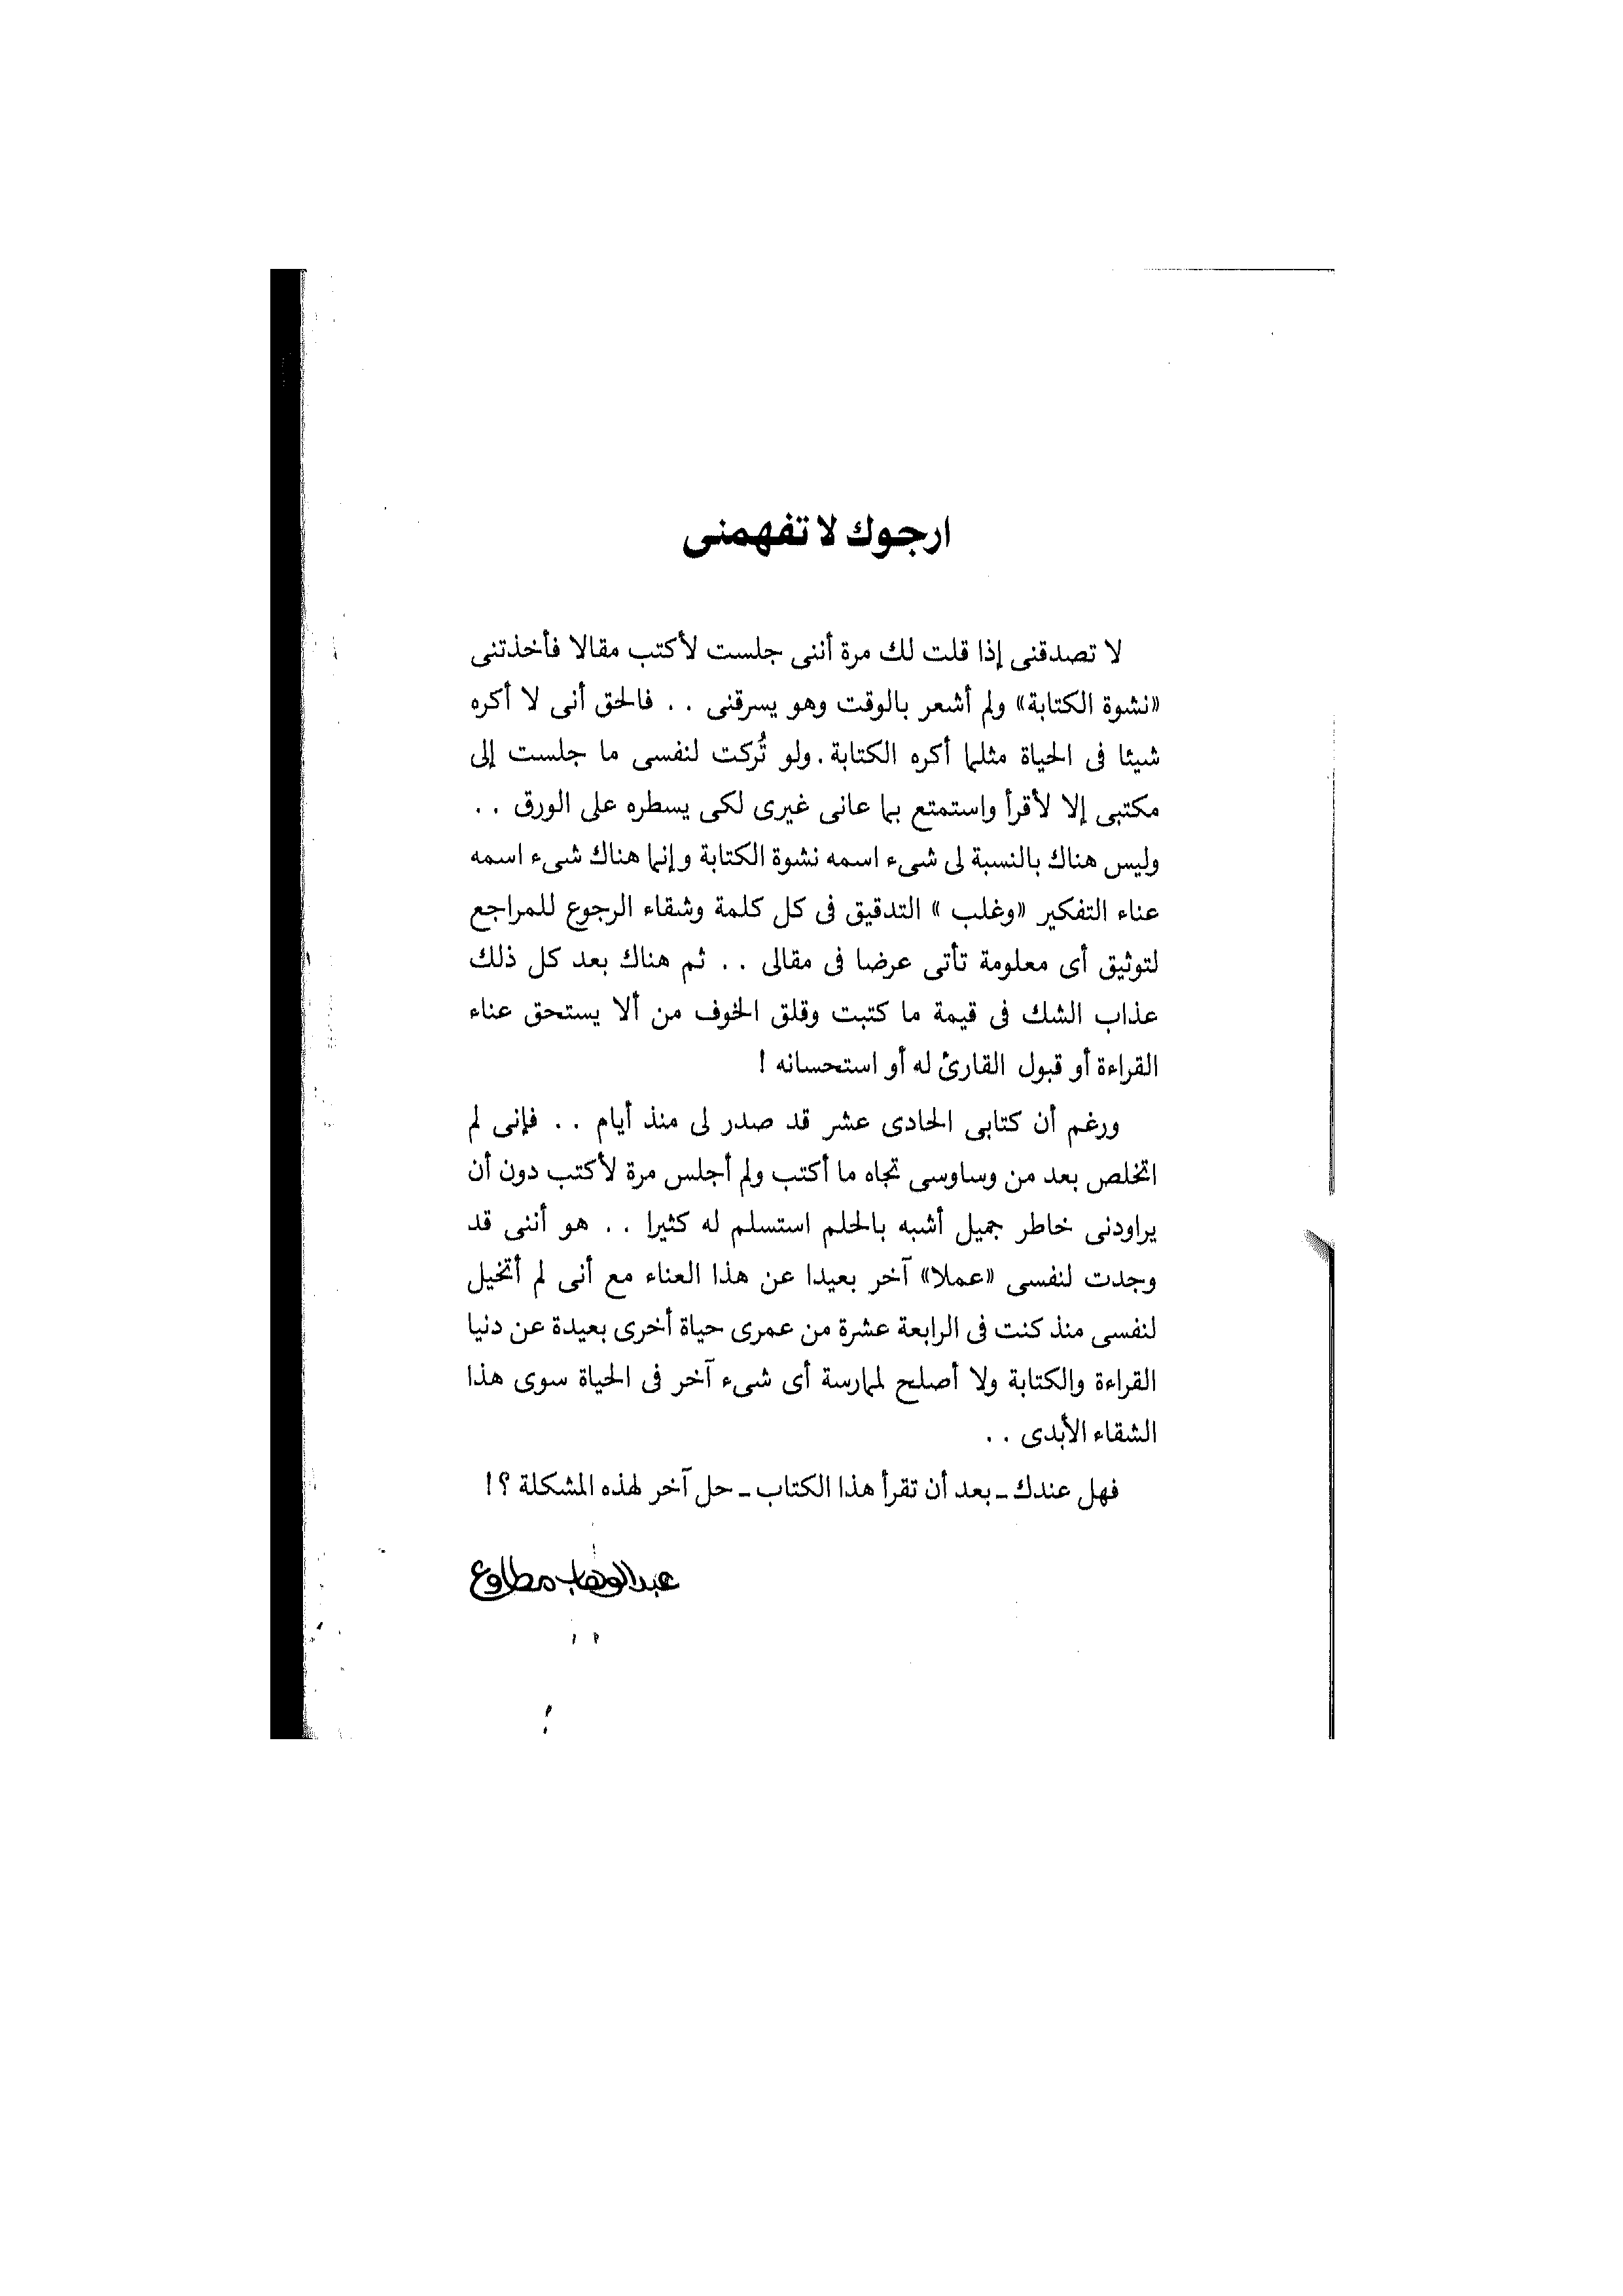 ارجوك لا تفهمنى
لا تصدقنى إذا قلت لك مرة أننى جلست لأكتب مقالا فأخذتنى
«نشوة الكتابة» ولم أشعر بالوقت وهو يسرقنى . . فالحق أنى لا أكره
شيئا فى الحياة مثلما أكره الكتابة . ولو تُركت لنفسى ما جلست إلى
مكتبى إلا لأقرأ واستمتع بما عانى غيرى لكى يسطره على الورق . .
وليس هناك بالنسبة لى شىء اسمه نشوة الكتابة وإنما هناك شىء اسمه
عناء التفكير «وغلب » التدقيق فى كل كلمة وشقاء الرجوع للمراجع
لتوثيق أى معلومة تأتى عرضا فى مقالى . . ثم هناك بعد كل ذلك
عذاب الشك فى قيمة ما كتبت وقلق الخوف من ألا يستحق عناء
القراءة أو قبول القارئ له أو استحسانه !
ورغم أن كتابى الحادى عشر قد صدر لى منذ أيام . . فإنى لم
اتخلص بعد من وساوسى تجاه ما أكتب ولم أجلس مرة لأكتب دون أن
يراودنى خاطر جميل أشبه بالحلم استسلم له كثيرا . . هو أننى قد
وجدت لنفسى «عملا» آخر بعيدا عن هذا العناء مع أنى لم أتخيل
لنفسى منذ كنت فى الرابعة عشرة من عمرى حياة أخرى بعيدة عن دنيا
القراءة والكتابة ولا أصلح لممارسة أى شىء آخر فى الحياة سوى هذا
الشقاء الأبدى . .
فهل عندك ـ بعد أن تقرأ هذا الكتاب ـ حل آخر لهذه المشكلة ؟!
عبدالوهاب مطاوع